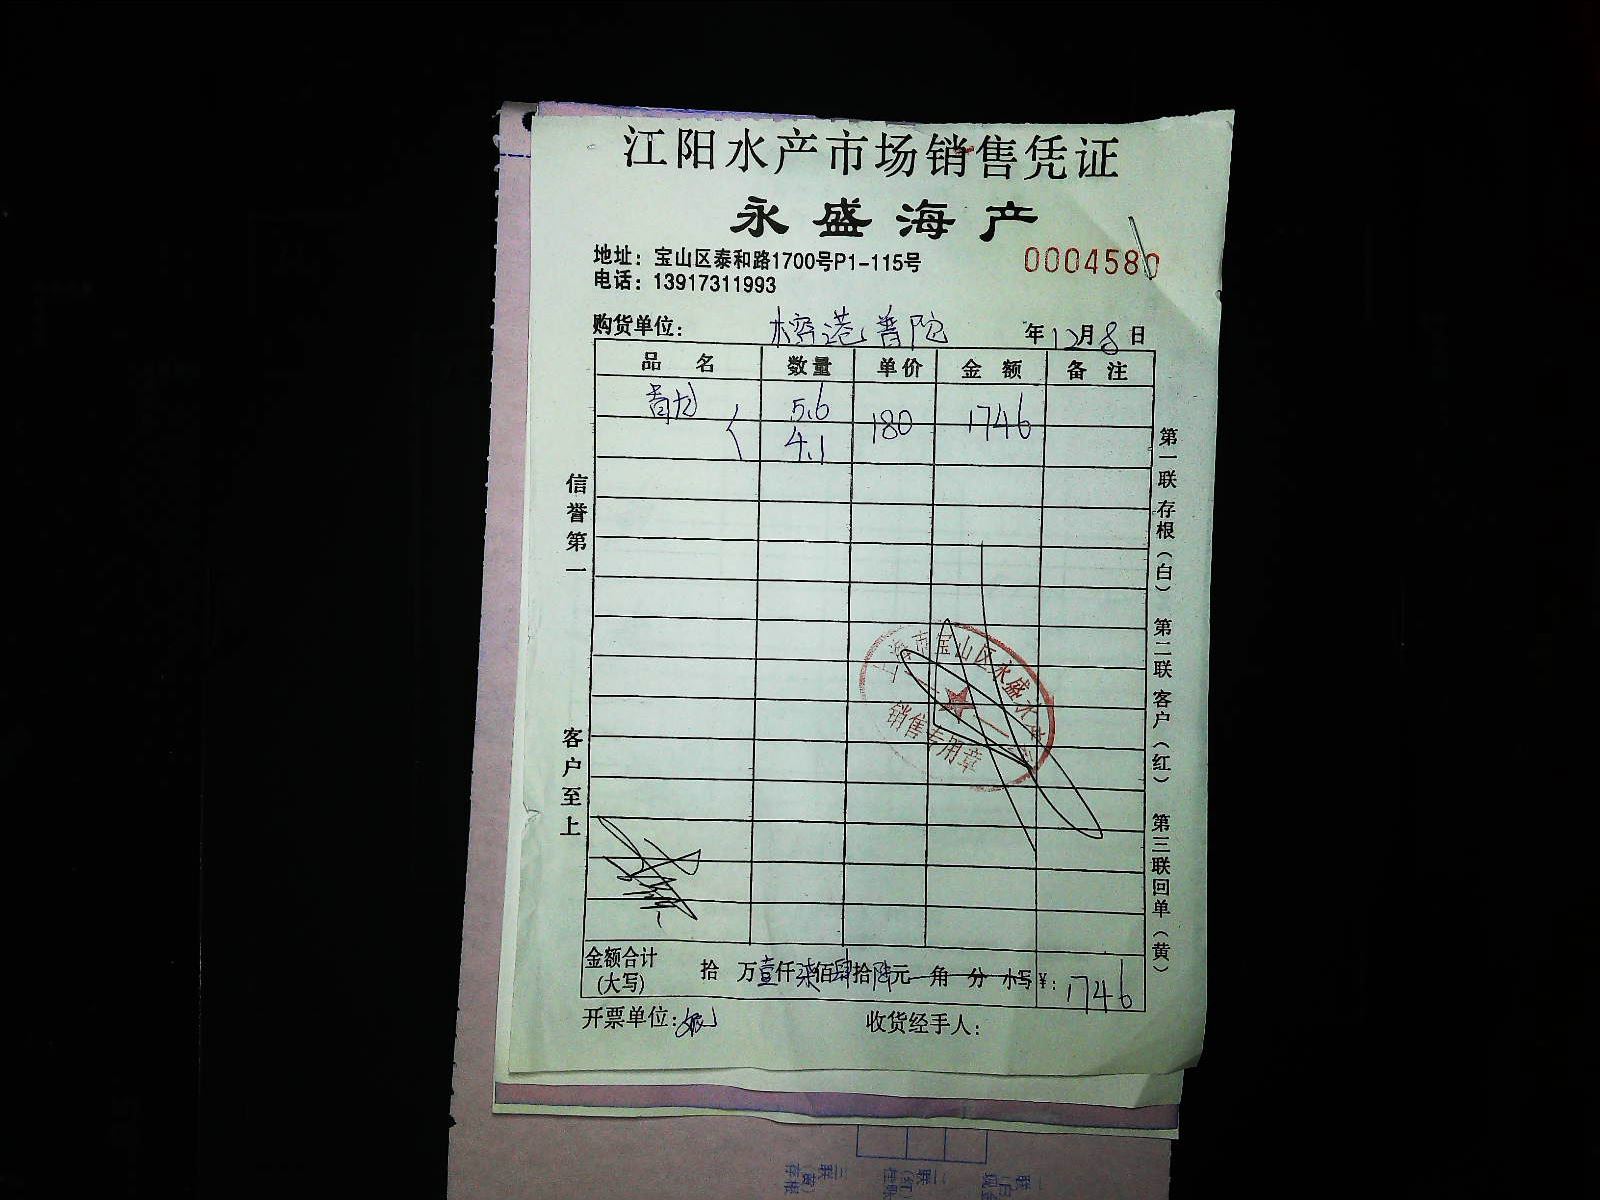 江阳水产市场销售凭证
永盛海产
地址：宝山区泰和路1700号P1-115号
0004580
电话：13917311993
购货单位：榕港普陀 年12月8日
品名 数量 单价 金额 备注
青龙 5.6 180 1746
4.1
信誉第一
客户至上
第一联存根（白） 第二联客户（红） 第三联回单（黄）
上海市宝山区永盛水产
销售专用章
金额合计 拾 万壹仟柒佰肆拾陆元 角 分 小写￥：1746
（大写）
开票单位： 收货经手人：